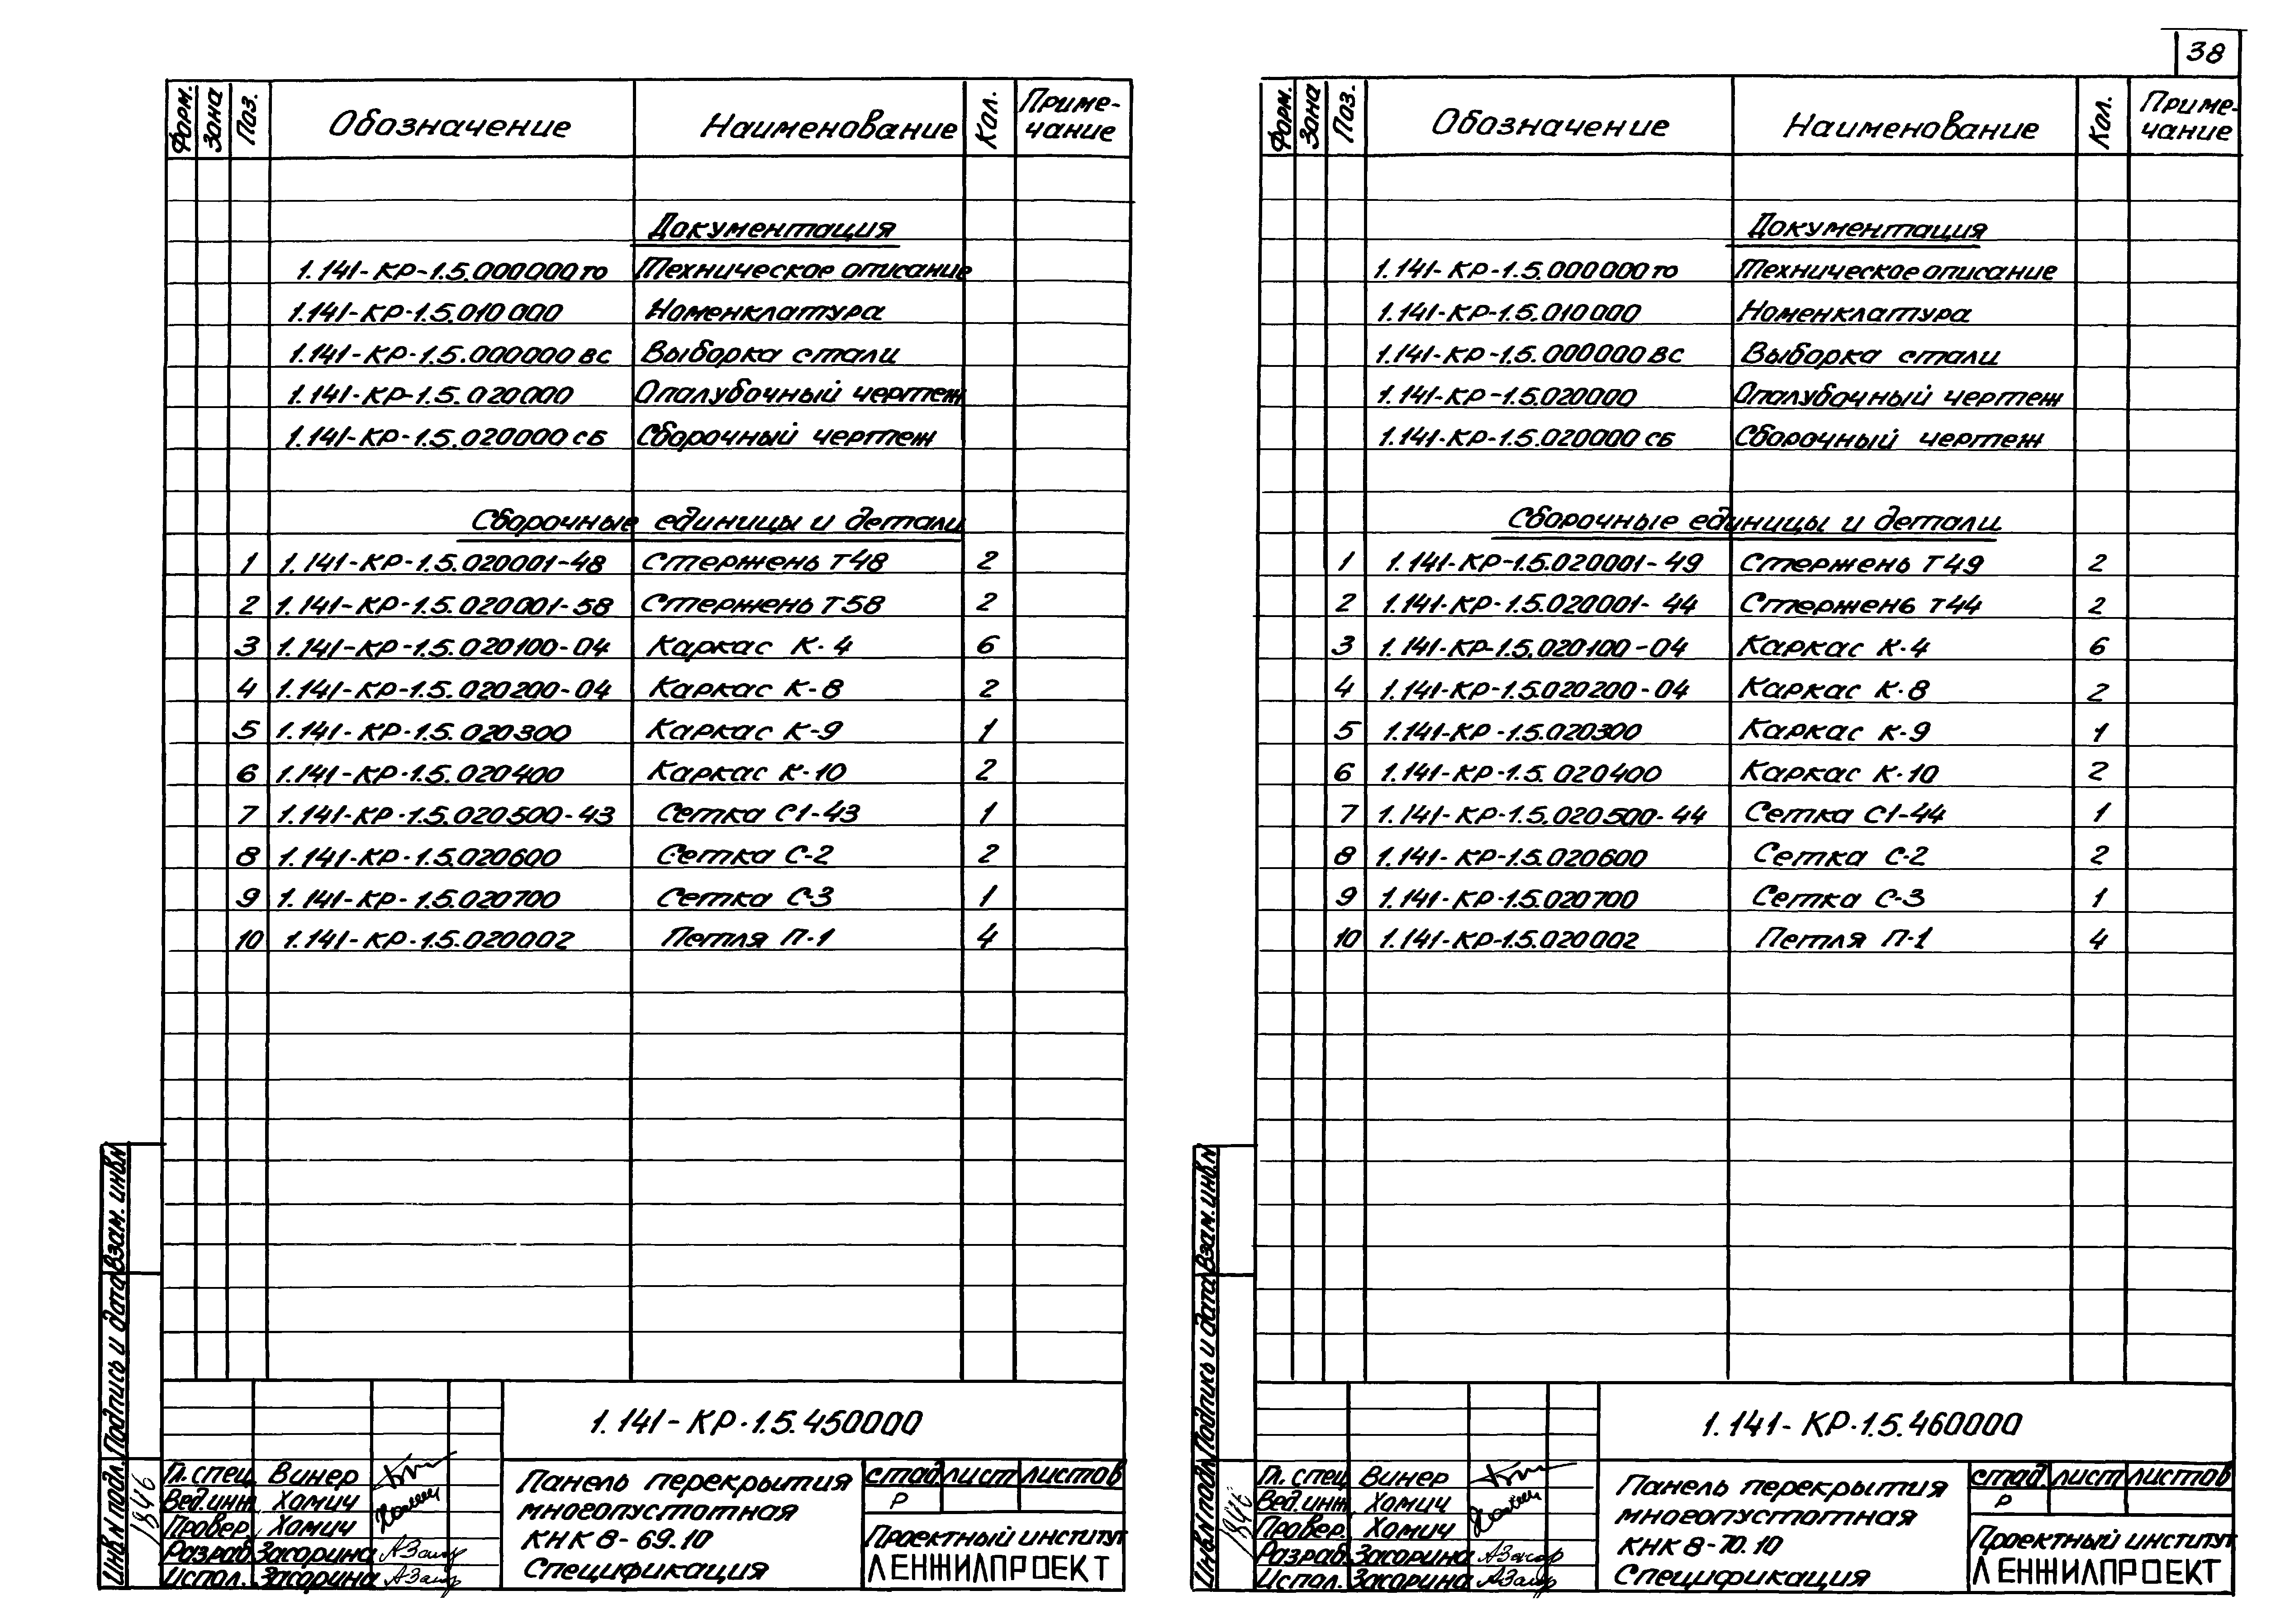 38
Форм. Зона Поз. Обозначение Наименование Кол. Приме-
чание
Документация
1.141-КР-1.5.000000то Техническое описание
1.141-КР-1.5.010000 Номенклатура
1.141-КР-1.5.000000вс Выборка стали
1.141-КР-1.5.020000 Опалубочный чертеж
1.141-КР-1.5.020000сб Сборочный чертеж
Сборочные единицы и детали
1 1.141-КР-1.5.020001-48 Стержень Т48 2
2 1.141-КР-1.5.020001-58 Стержень Т58 2
3 1.141-КР-1.5.020100-04 Каркас К-4 6
4 1.141-КР-1.5.020200-04 Каркас К-8 2
5 1.141-КР-1.5.020300 Каркас К-9 1
6 1.141-КР-1.5.020400 Каркас К-10 2
7 1.141-КР-1.5.020500-43 Сетка С1-43 1
8 1.141-КР-1.5.020600 Сетка С-2 2
9 1.141-КР-1.5.020700 Сетка С-3 1
10 1.141-КР-1.5.020002 Петля П-1 4
Взам. инв.N
Подпись и дата
Инв.N подл.
1846
1.141-КР-1.5.450000
Гл. спец. Винер
Вед.инж. Хомич
Провер. Хомич
Разраб. Засорина
Испол. Засорина
Панель перекрытия
многопустотная
КНК 8-69.10
Спецификация
стад. лист листов
Р
Проектный институт
ЛЕНЖИЛПРОЕКТ
Форм. Зона Поз. Обозначение Наименование Кол. Приме-
чание
Документация
1.141-КР-1.5.000000то Техническое описание
1.141-КР-1.5.010000 Номенклатура
1.141-КР-1.5.000000вс Выборка стали
1.141-КР-1.5.020000 Опалубочный чертеж
1.141-КР-1.5.020000сб Сборочный чертеж
Сборочные единицы и детали
1 1.141-КР-1.5.020001-49 Стержень Т49 2
2 1.141-КР-1.5.020001-44 Стержень Т44 2
3 1.141-КР-1.5.020100-04 Каркас К-4 6
4 1.141-КР-1.5.020200-04 Каркас К-8 2
5 1.141-КР-1.5.020300 Каркас К-9 1
6 1.141-КР-1.5.020400 Каркас К-10 2
7 1.141-КР-1.5.020500-44 Сетка С1-44 1
8 1.141-КР-1.5.020600 Сетка С-2 2
9 1.141-КР-1.5.020700 Сетка С-3 1
10 1.141-КР-1.5.020002 Петля П-1 4
Взам. инв.N
Подпись и дата
Инв.N подл.
1846
1.141-КР-1.5.460000
Гл. спец. Винер
Вед.инж. Хомич
Провер. Хомич
Разраб. Засорина
Испол. Засорина
Панель перекрытия
многопустотная
КНК 8-70.10
Спецификация
стад. лист листов
Р
Проектный институт
ЛЕНЖИЛПРОЕКТ